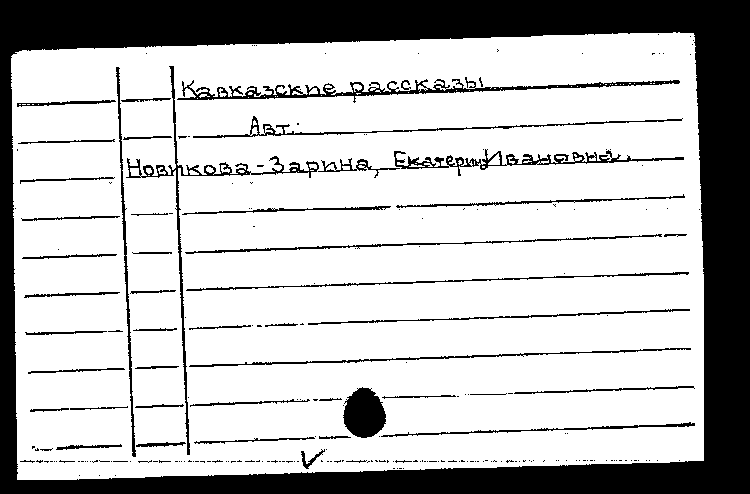 Кавказские рассказы
Авт.:
Новикова-Зарина, Екатерина Ивановна.